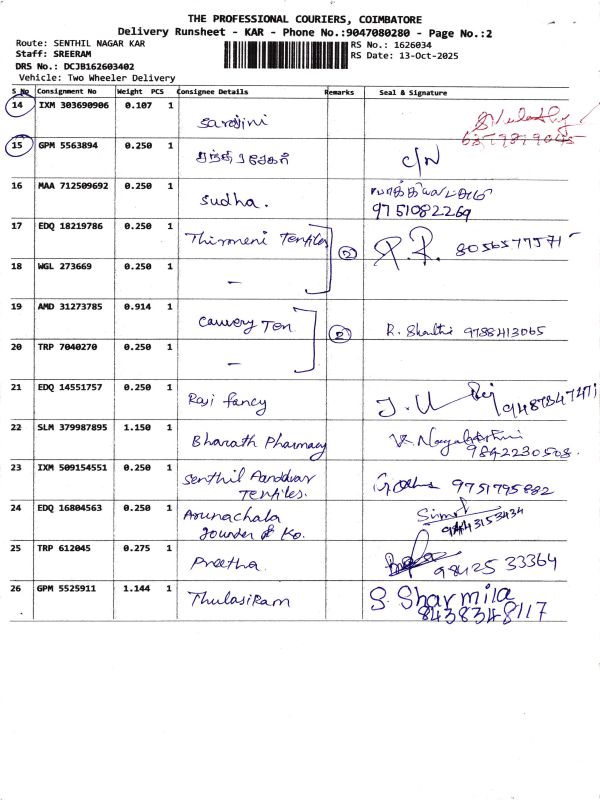 THE PROFESSIONAL COURIERS, COIMBATORE
Delivery Runsheet - KAR - Phone No.:9047080280 - Page No.:2
Route: SENTHIL NAGAR KAR
RS No.: 1626034
Staff: SREERAM
RS Date: 13-Oct-2025
DRS No.: DCJB162603402
Vehicle: Two Wheeler Delivery
S No Consignment No Weight PCS Consignee Details Remarks Seal & Signature
14 IXM 303690906 0.107 1 Sarojini
15 GPM 5563894 0.250 1 சந்திரசேகர் C/N
16 MAA 712509692 0.250 1 Sudha.
9751082269
17 EDQ 18219786 0.250 1 Thirumeni Textiles 2 8056577571
18 WGL 273669 0.250 1 —
19 AMD 31273785 0.914 1 Cauvery Tex 2 R. Shanthi 9788413065
20 TRP 7040270 0.250 1 —
21 EDQ 14551757 0.250 1 Raji fancy
9487347471
22 SLM 379987895 1.150 1 Bharath Pharmacy
9842230508.
23 IXM 509154551 0.250 1 Senthil Aandavar
Textiles. 9751795882
24 EDQ 16804563 0.250 1 Arunachala
& Ko. 9443153434
25 TRP 612045 0.275 1 Preetha. 98425 33364
26 GPM 5525911 1.144 1 ThulasiRam S. Sharmila
8438348117